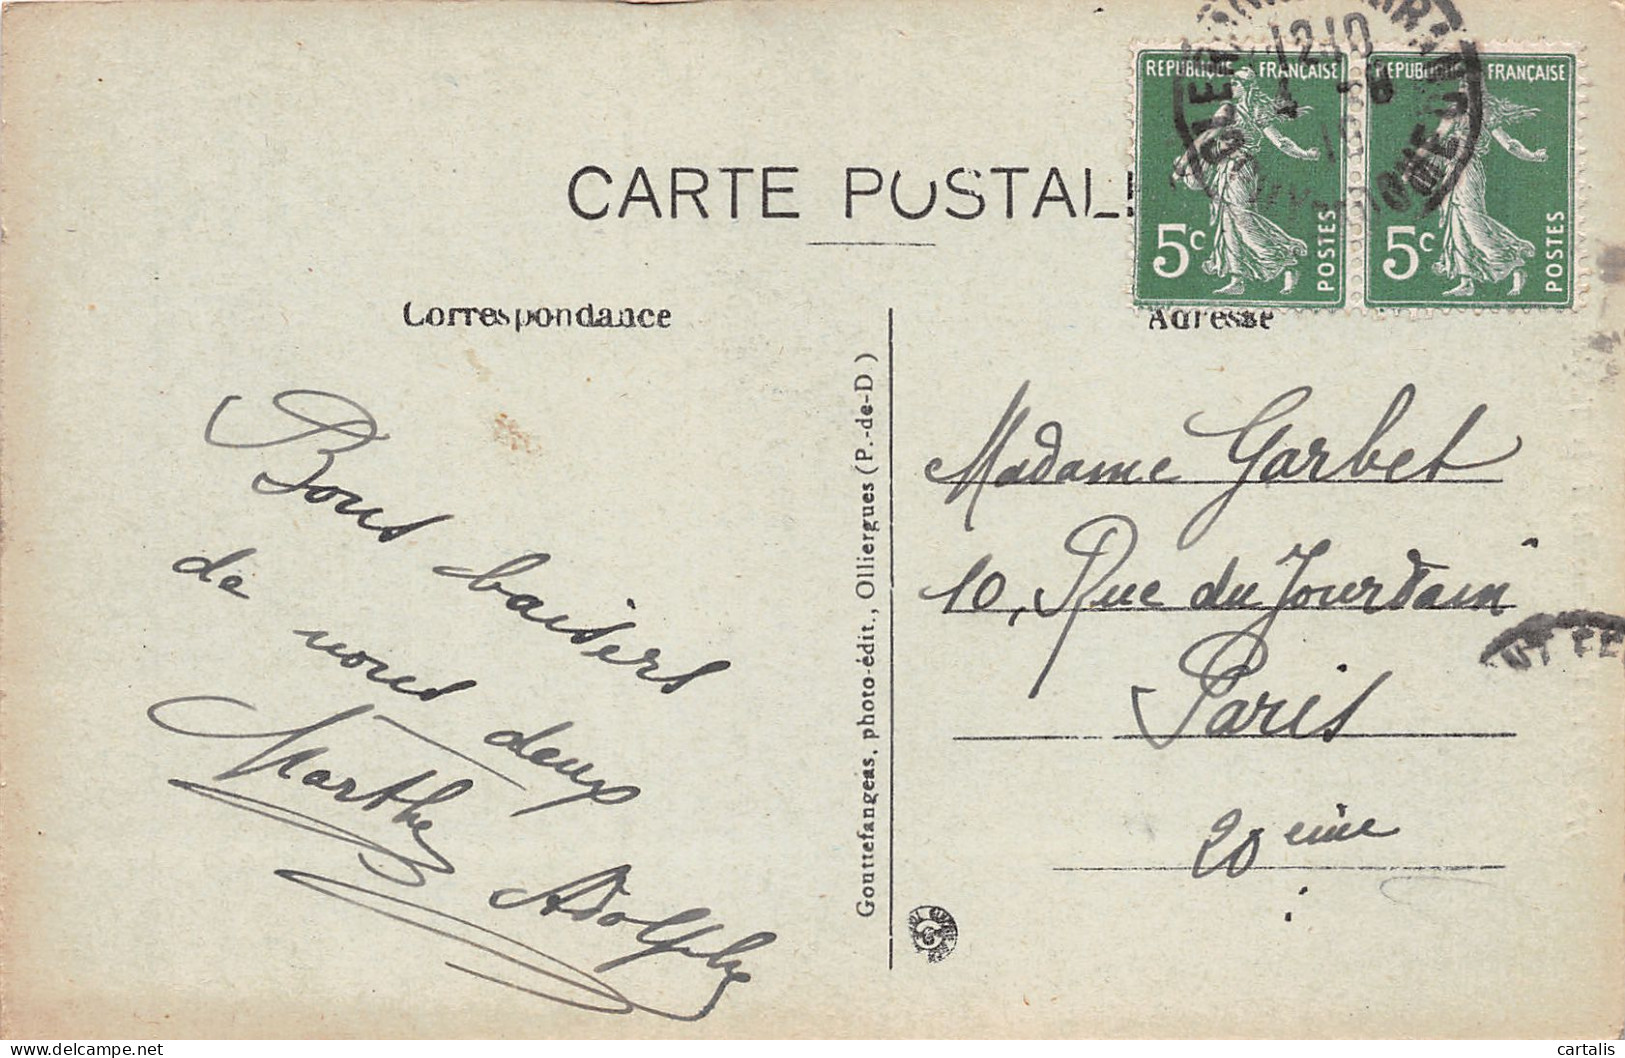 CARTE POSTALE
RÉPUBLIQUE FRANÇAISE
5c POSTES
RÉPUBLIQUE FRANÇAISE
5c POSTES
12 10
Correspondance
Adresse
Bons baisers
de nous deux
Marthe
Adolphe
Gouttefangeas, photo-édit., Olliergues (P.-de-D)
Madame Garbet
10, Rue du Jourdain
Paris
20 eme
cartalis